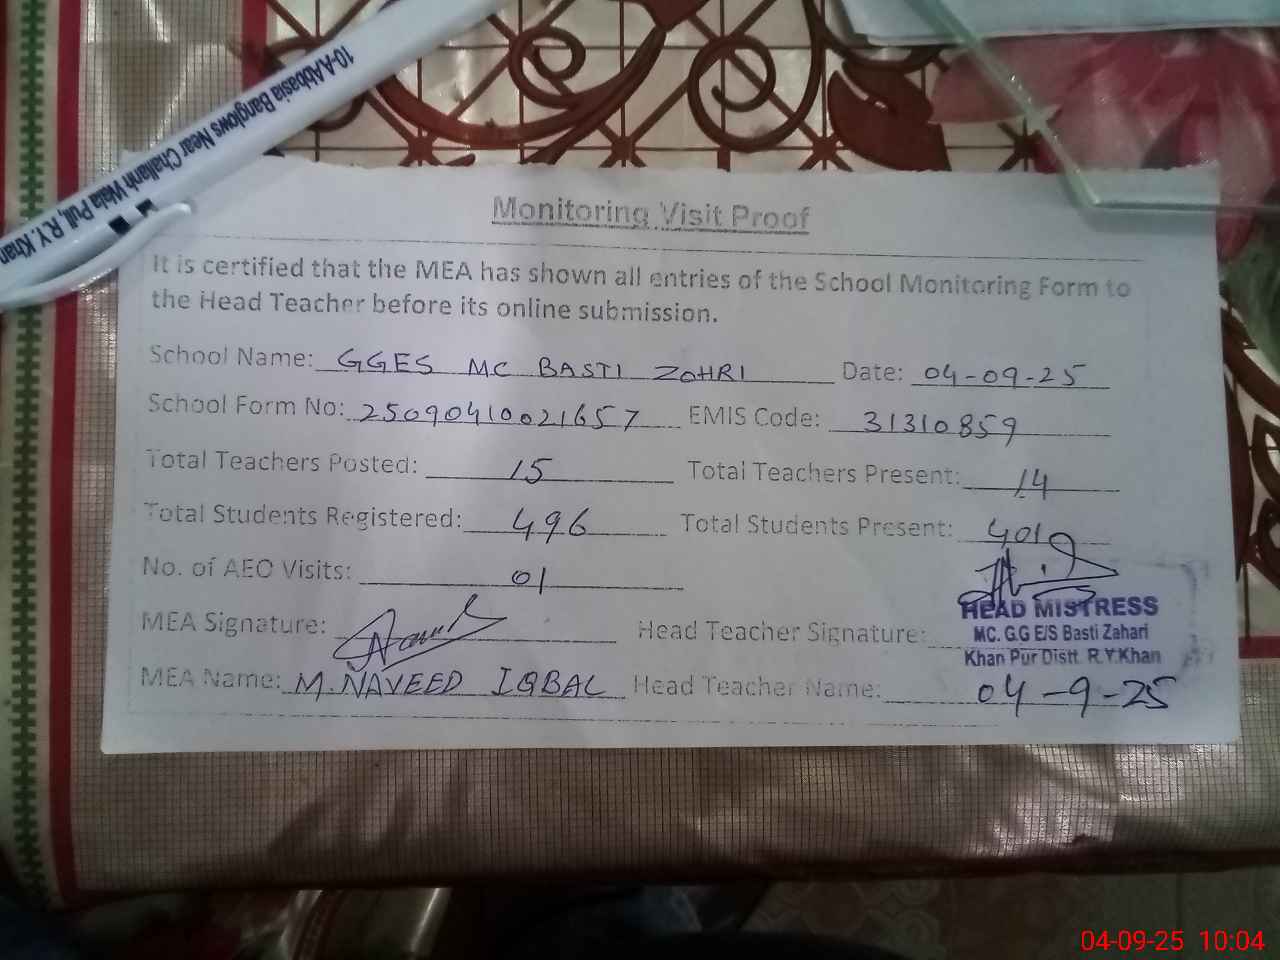 10-A Abbasia Banglows Near Challanh Wala Pull, R.Y.Khan
Monitoring Visit Proof
It is certified that the MEA has shown all entries of the School Monitoring Form to
the Head Teacher before its online submission.
School Name: GGES MC BASTI ZOHRI Date: 04-09-25
School Form No: 25090410021657 EMIS Code: 31310859
Total Teachers Posted: 15 Total Teachers Present: 14
Total Students Registered: 496 Total Students Present: 401
No. of AEO Visits: 01
MEA Signature: Head Teacher Signature:
HEAD MISTRESS
MC. G.G E/S Basti Zahari
Khan Pur Distt. R.Y.Khan
MEA Name: M.NAVEED IQBAL Head Teacher Name: 04-9-25
04-09-25 10:04